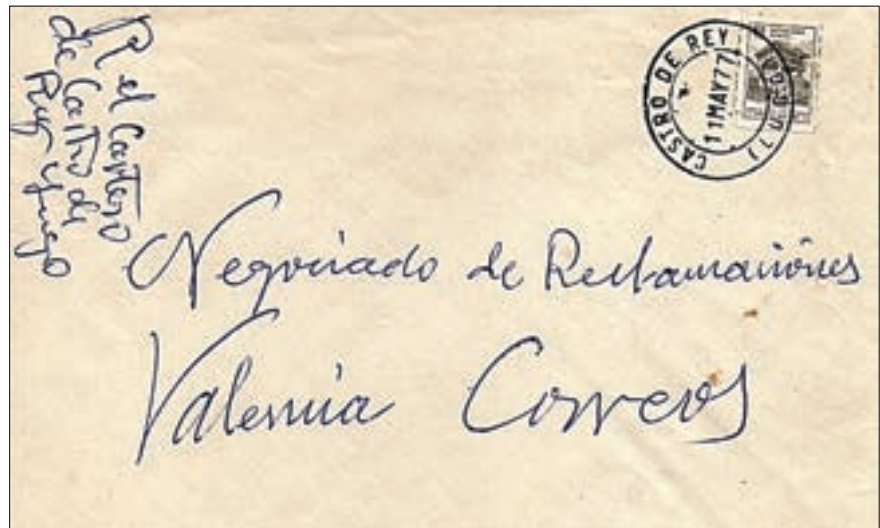 R el Cartero
de Castro de
Rey
CASTRO DE REY (LUGO)
11 MAY 77
Negociado de Reclamaciones
Valencia Correos